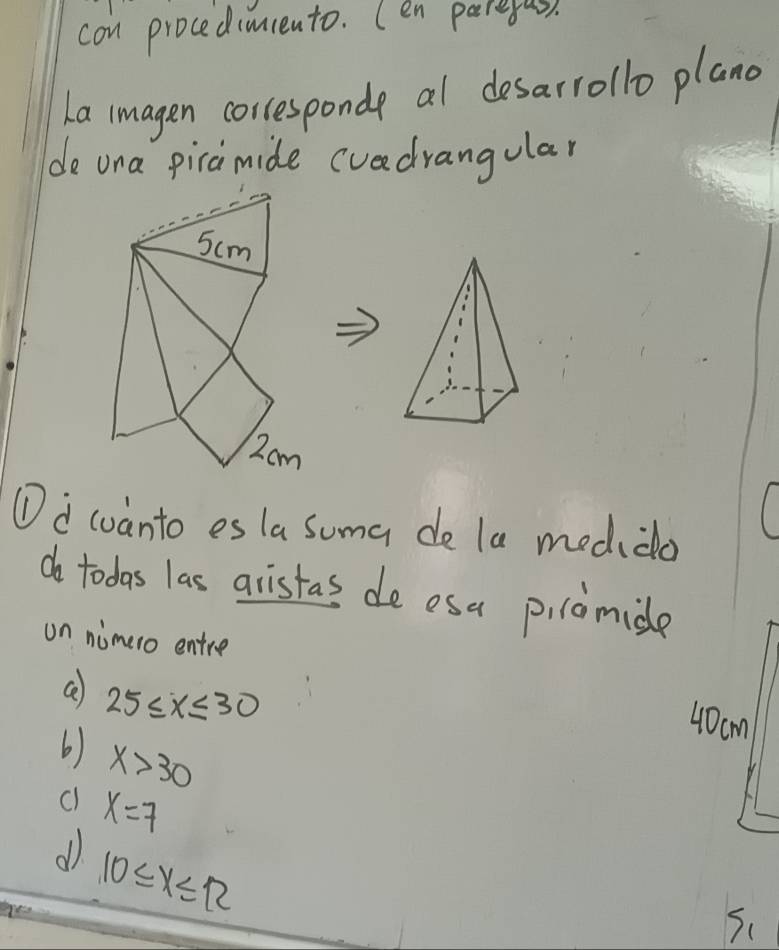 con procedimiento. (en parejas).
La imagen corresponde al desarrollo plano
de una pirámide cuadrangular
5cm
⇒
2cm
① ¿cuánto es la suma de la medida
de todas las aristas de esa pirámide
un número entre
a) 25 ≤ x ≤ 30
b) x > 30
c) x = 7
d) 10 ≤ x ≤ 12
40cm